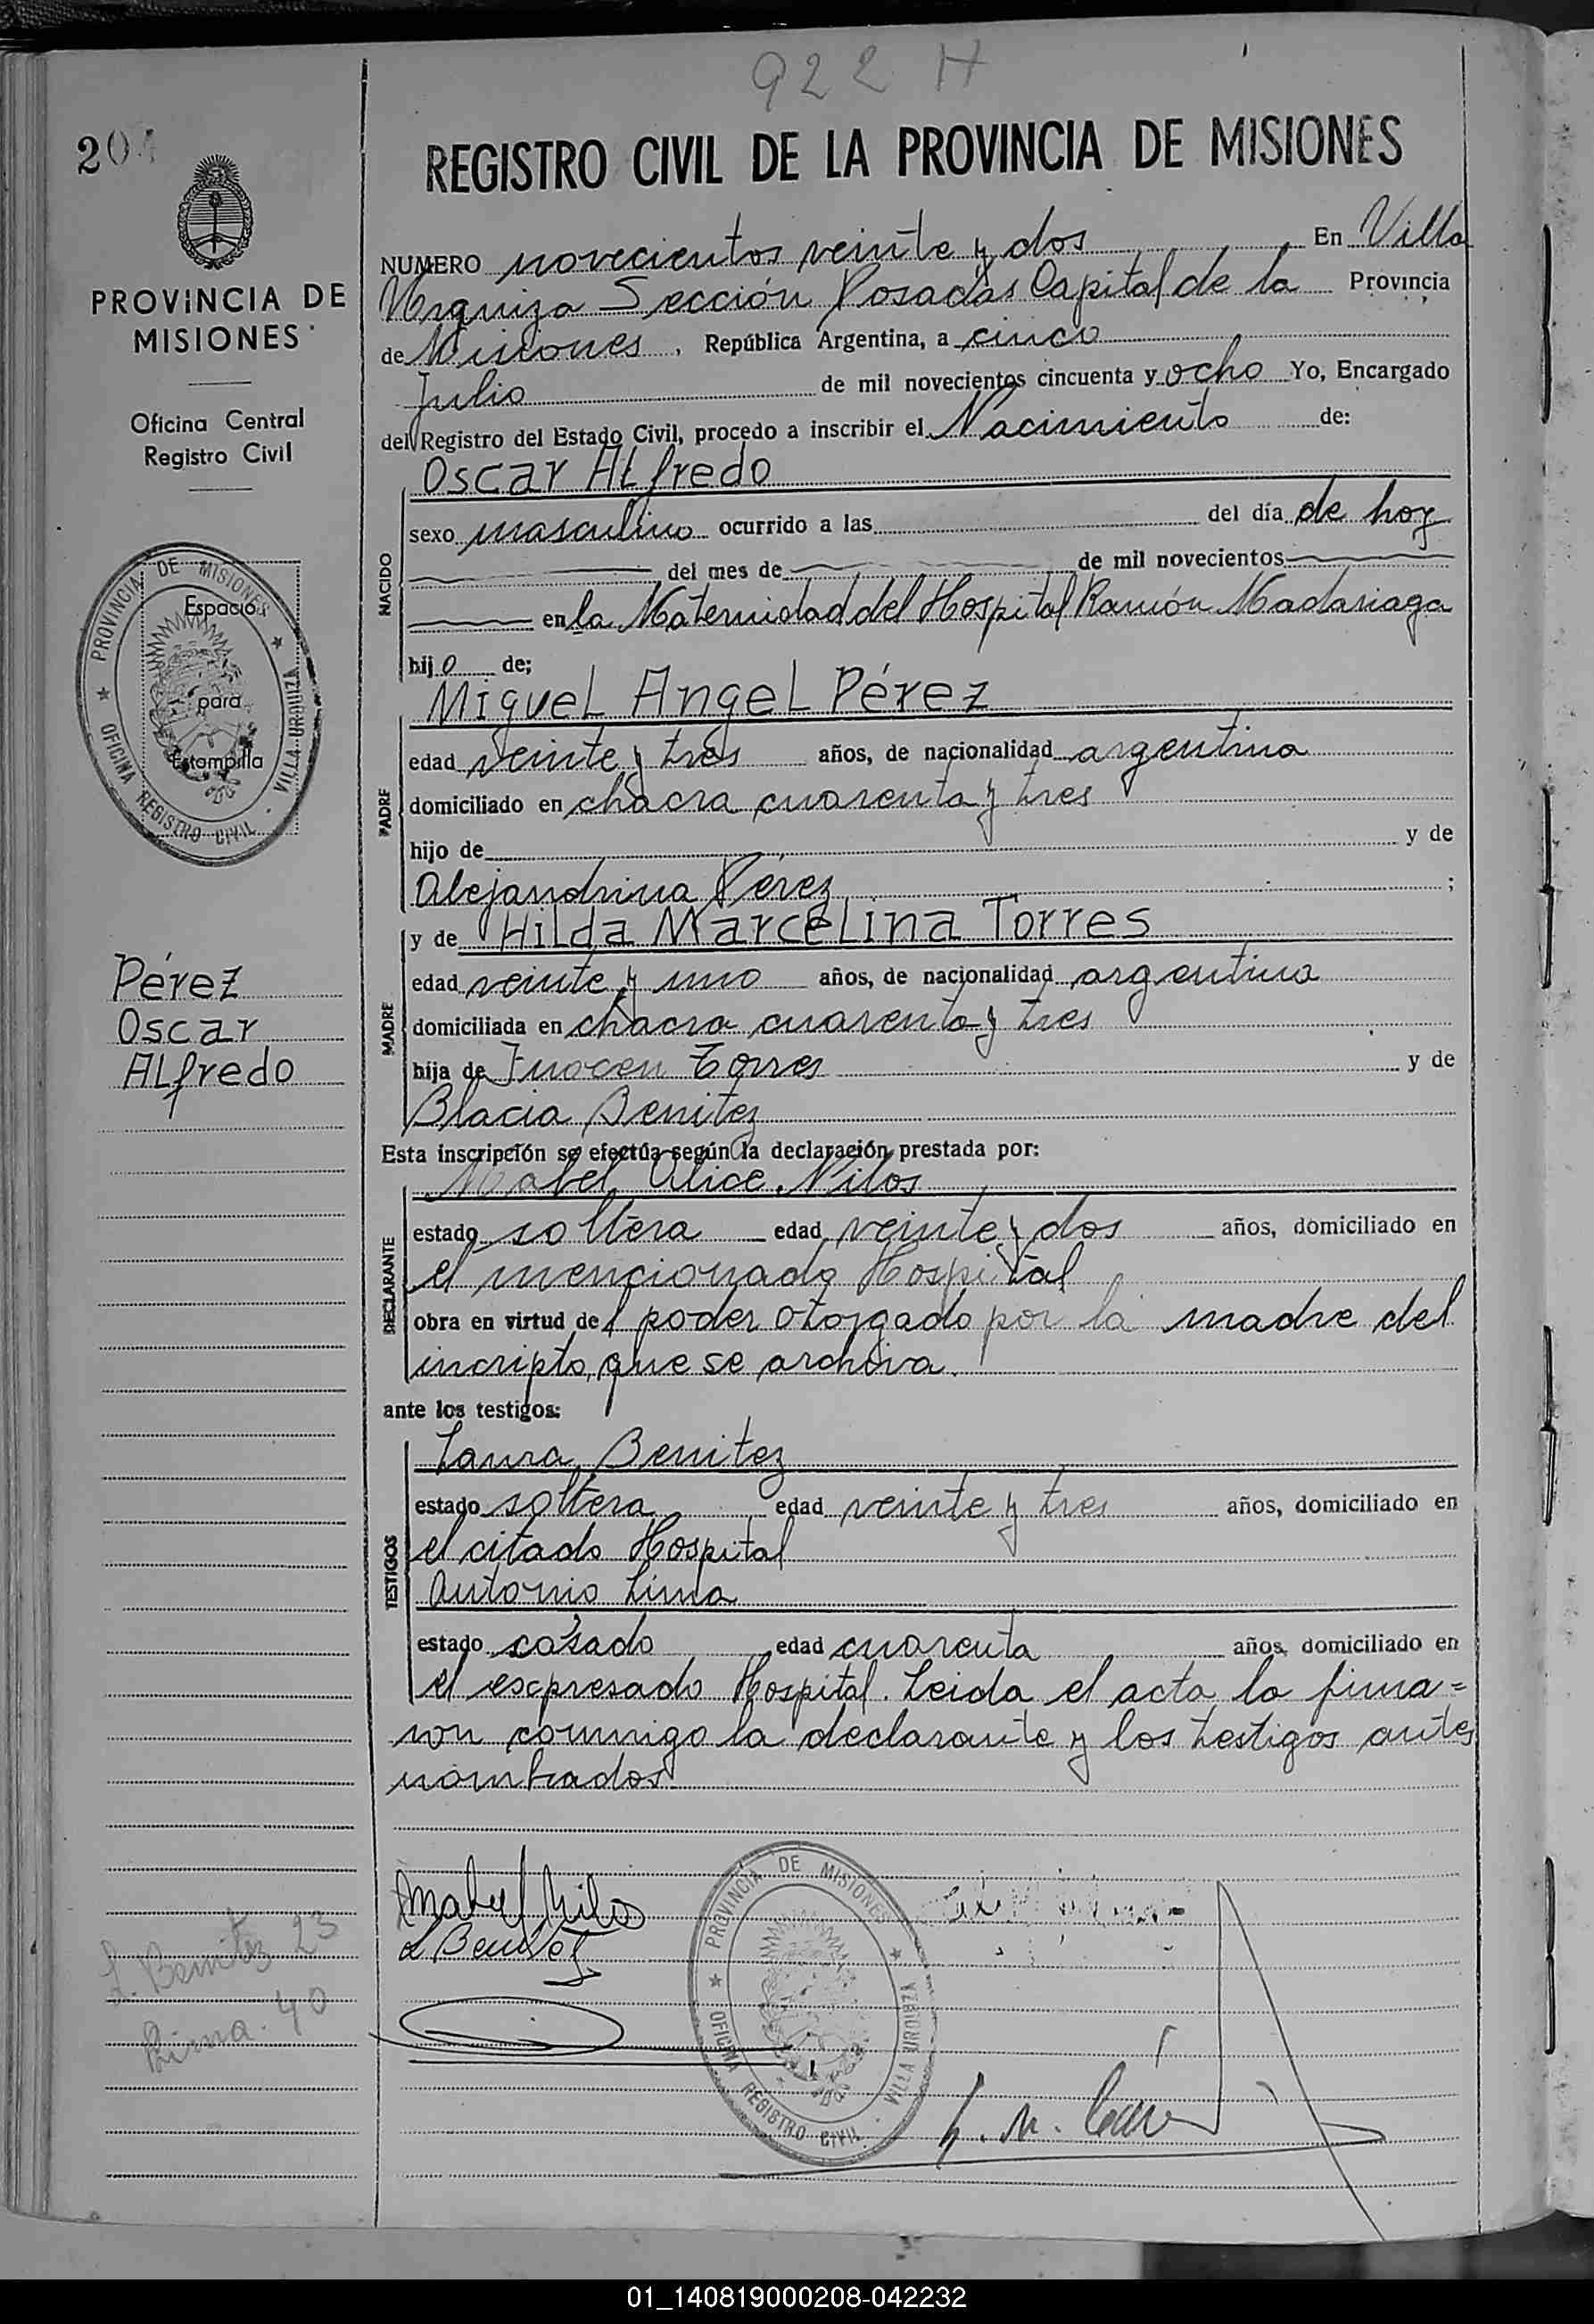 922 H
20
REGISTRO CIVIL DE LA PROVINCIA DE MISIONES
PROVINCIA DE
MISIONES
Oficina Central
Registro Civil
PROVINCIA DE MISIONES
OFICINA REGISTRO CIVIL - VILLA URQUIZA
Espacio
para
Estampilla
Pérez
Oscar
Alfredo
NUMERO novecientos veinte y dos En Villa
Urquiza Sección Posadas Capital de la Provincia
de Misiones, República Argentina, a cinco
Julio de mil novecientos cincuenta y ocho Yo, Encargado
del Registro del Estado Civil, procedo a inscribir el Nacimiento de:
Oscar Alfredo
NACIDO
sexo masculino ocurrido a las del día de hoy
del mes de de mil novecientos
en la Maternidad del Hospital Ramón Madariaga
hijo de;
Miguel Angel Pérez
PADRE
edad veinte y tres años, de nacionalidad argentina
domiciliado en chacra cuarenta y tres
hijo de y de
Alejandrina Pérez ;
y de Hilda Marcelina Torres
MADRE
edad veinte y uno años, de nacionalidad argentina
domiciliada en chacra cuarenta y tres
hija de Inocen Torres y de
Blacia Benitez
Esta inscripción se efectúa según la declaración prestada por:
Mabel Alice Nilos
DECLARANTE
estado soltera edad veinte y dos años, domiciliado en
el mencionado Hospital
obra en virtud del poder otorgado por la madre del
incripto, que se archiva.
ante los testigos:
Laura Benitez
TESTIGOS
estado soltera edad veinte y tres años, domiciliado en
el citado Hospital
Antonio Lima
estado casado edad cuarenta años, domiciliado en
el expresado Hospital. Leida el acta la firma=
ron conmigo la declarante y los testigos antes
nombrados
Mabel Nilos
L Benitez
PROVINCIA DE MISIONES
OFICINA REGISTRO CIVIL - VILLA URQUIZA
L. Benitez 23
Lima 40
01_140819000208-042232